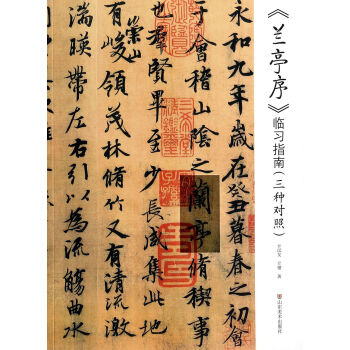 《兰亭序》
临习指南(三种对照)
著
山东美术出版社
永和九年歲在癸丑暮春之初會
于會稽山陰之蘭亭脩稧事
也羣賢畢至少長咸集此地
有崇山峻領茂林脩竹又有清流激
湍暎帶左右引以為流觴曲水